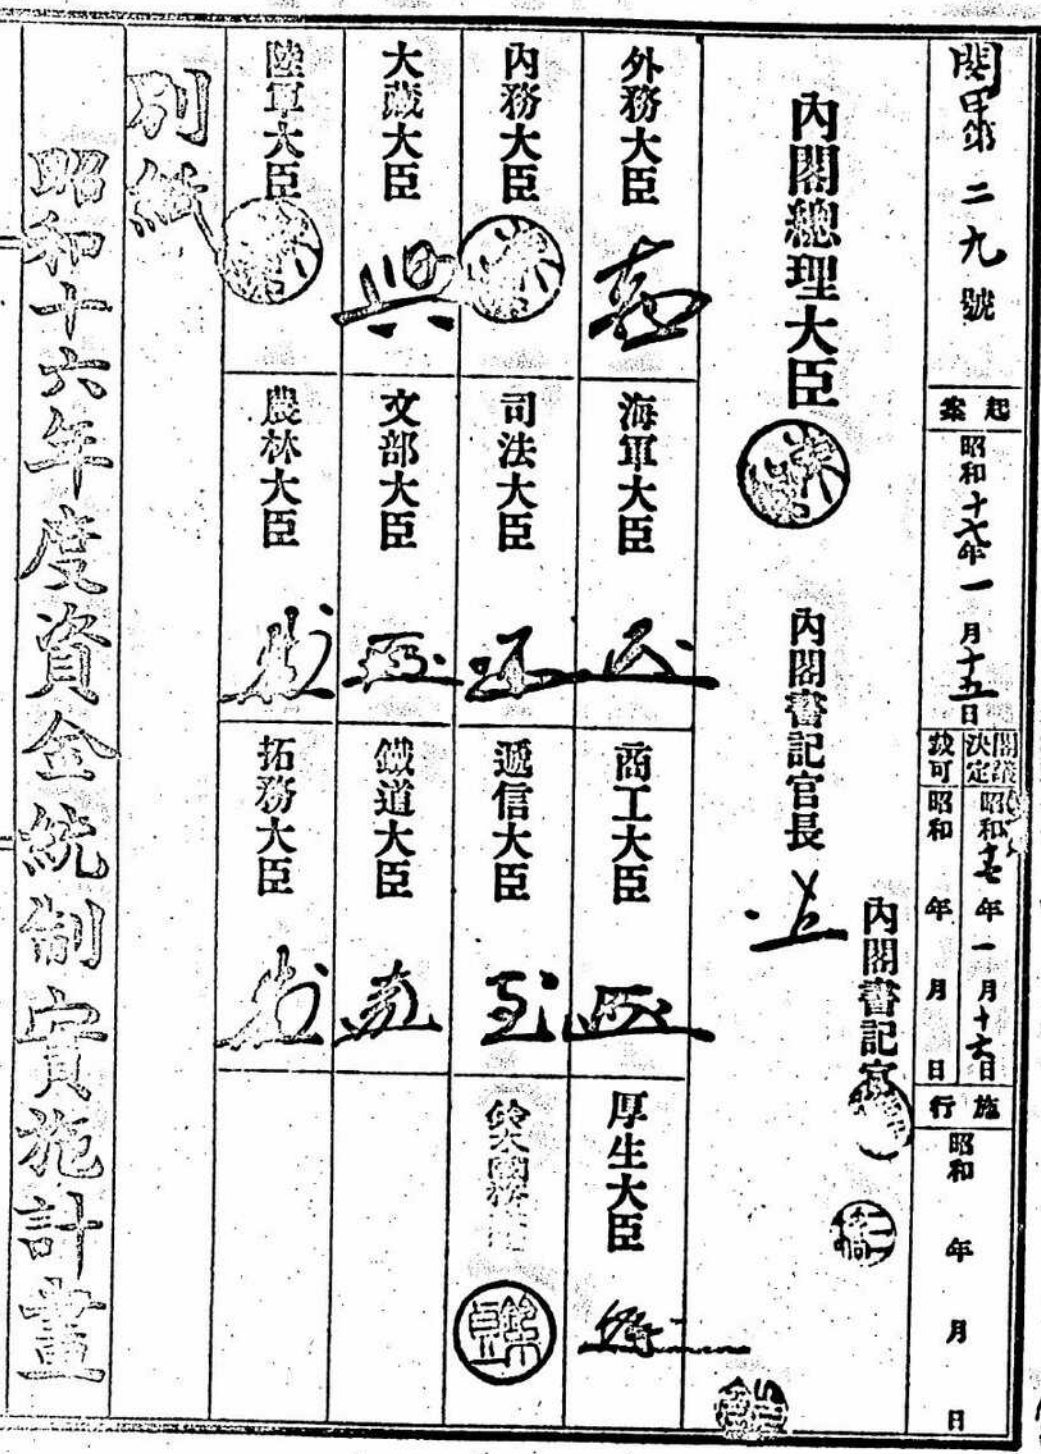 閣甲第二九號
起案
昭和十七年一月十五日
閣議決定
昭和十七年一月十六日
裁可
昭和 年 月 日
施行
昭和 年 月 日
內閣書記官
內閣總理大臣
內閣書記官長
外務大臣
海軍大臣
商工大臣
厚生大臣
內務大臣
司法大臣
遞信大臣
大藏大臣
文部大臣
鐵道大臣
陸軍大臣
農林大臣
拓務大臣
別紙
昭和十六年度資金統制實施計畫